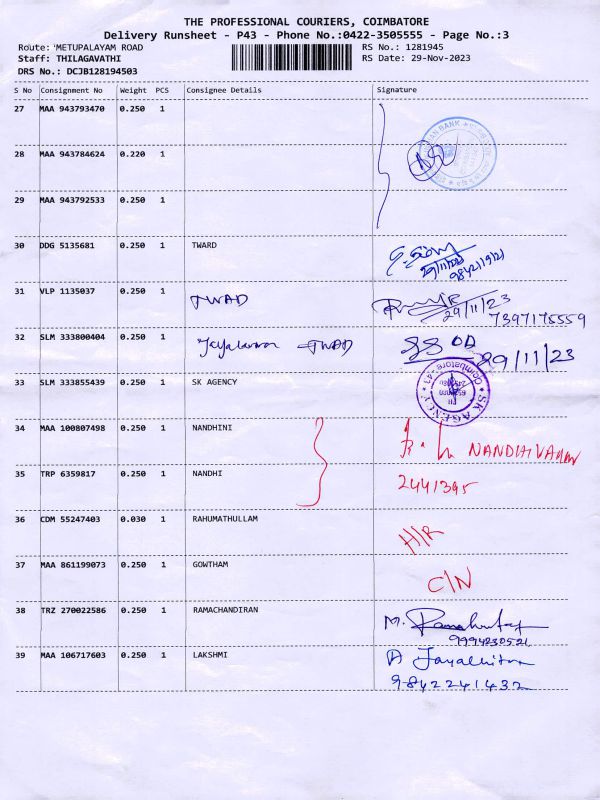 THE PROFESSIONAL COURIERS, COIMBATORE
Delivery Runsheet - P43 - Phone No.:0422-3505555 - Page No.:3
Route: 'METUPALAYAM ROAD
RS No.: 1281945
Staff: THILAGAVATHI
RS Date: 29-Nov-2023
DRS No.: DCJB128194503
S No Consignment No Weight PCS Consignee Details Signature
27 MAA 943793470 0.250 1
28 MAA 943784624 0.220 1
29 MAA 943792533 0.250 1
30 DDG 5135681 0.250 1 TWARD
29/11/23
31 VLP 1135037 0.250 1 TWAD
29/11/23
7397175559
32 SLM 333800404 0.250 1 TWAD
29/11/23
33 SLM 333855439 0.250 1 SK AGENCY
SK AGENCY
34 MAA 100807498 0.250 1 NANDHINI
35 TRP 6359817 0.250 1 NANDHI 2441395
36 CDM 55247403 0.030 1 RAHUMATHULLAM
37 MAA 861199073 0.250 1 GOWTHAM C/N
38 TRZ 270022586 0.250 1 RAMACHANDIRAN M.
9994230521
39 MAA 106717603 0.250 1 LAKSHMI
9842241432